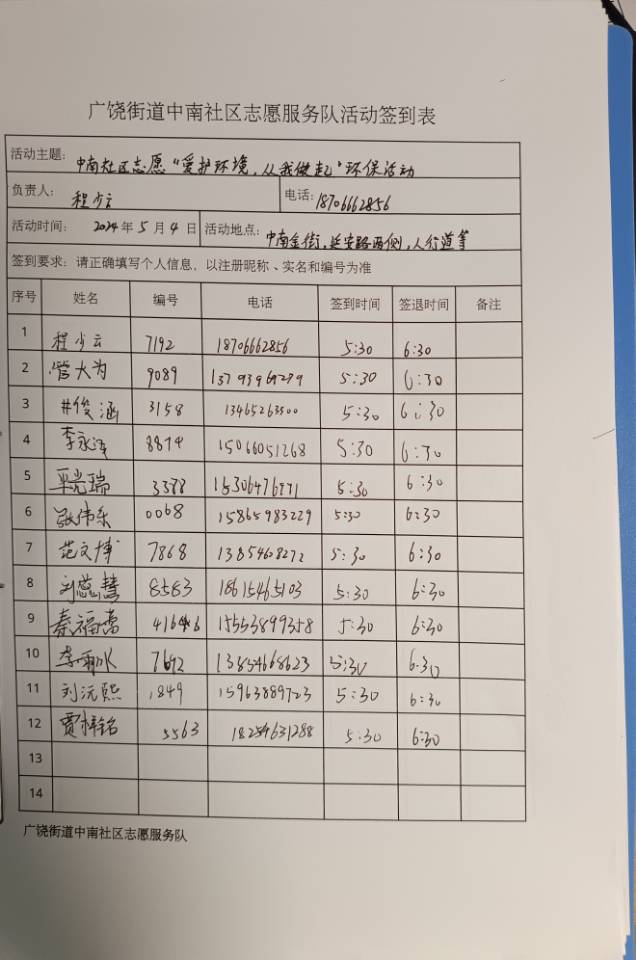 广饶街道中南社区志愿服务队活动签到表
活动主题: 中南社区志愿“爱护环境,从我做起”环保活动
负责人: 程少云 电话: 18706662856
活动时间: 2024年5月4日 活动地点: 中南金街,延安路两侧,人行道等
签到要求: 请正确填写个人信息, 以注册昵称、实名和编号为准
序号 姓名 编号 电话 签到时间 签退时间 备注
1 程少云 7192 18706662856 5:30 6:30
2 管大为 9089 5:30 6:30
3 俊涵 3158 13465263500 5:30 6:30
4 李永 8874 15066051268 5:30 6:30
5 光瑞 3388 5:30 6:30
6 张伟东 0068 15865983229 5:30 6:30
7 范文博 7868 13854608272 5:30 6:30
8 刘蕊慧 8583 18615465103 5:30 6:30
9 秦福 15553899358 5:30 6:30
10 李 7692 13854668623 5:30 6:30
11 刘沅熙 1849 15963889723 5:30 6:30
12 贾梓铭 5563 18254631288 5:30 6:30
13
14
广饶街道中南社区志愿服务队